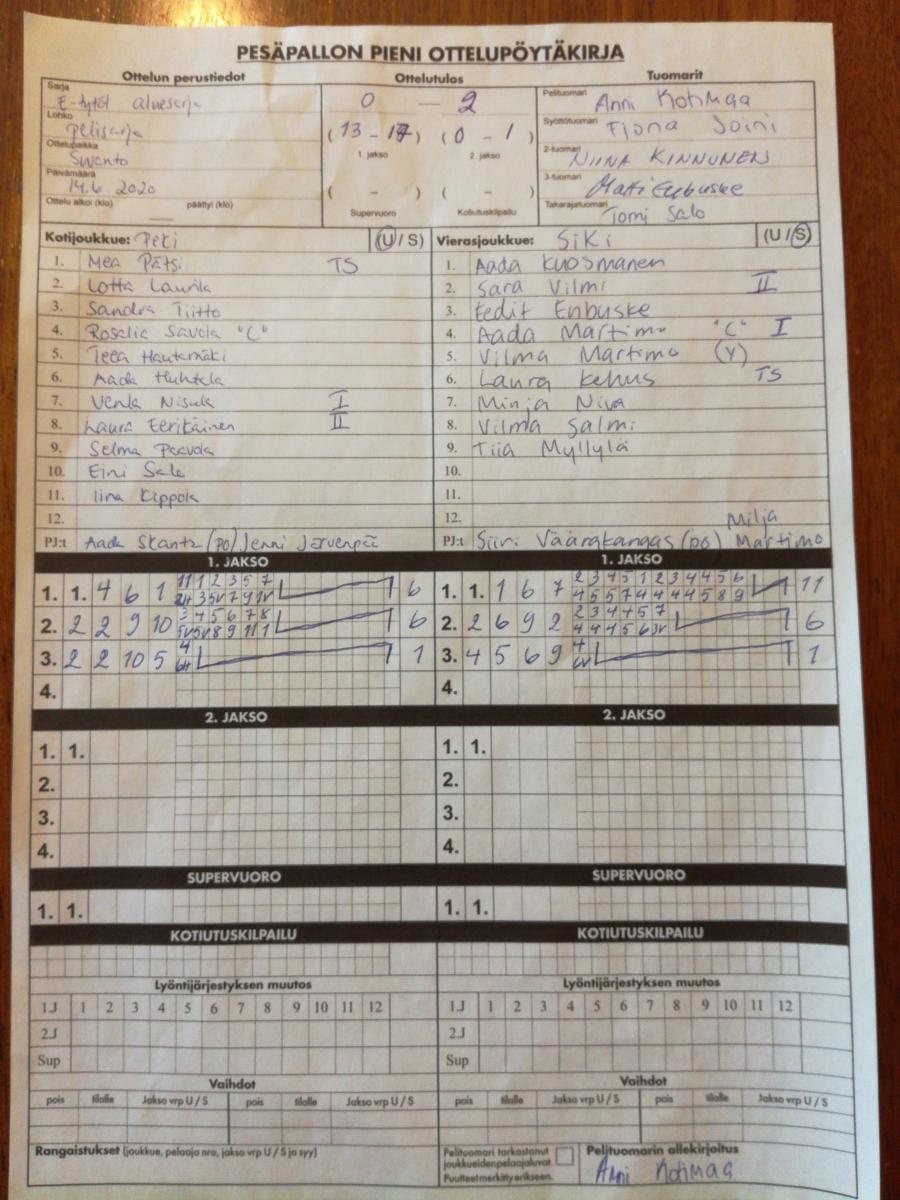 PESÄPALLON PIENI OTTELUPÖYTÄKIRJA
Ottelun perustiedot Ottelutulos Tuomarit
Sarja E-tytöt aluesarja 0 - 2 Pelituomari Anni Kotimaa
Lohko pelisarja (13 - 17) (0 - 1) Syöttötuomari Fiona Soini
1. jakso 2. jakso
Ottelupaikka Swento 2-tuomari NIINA KINNUNEN
Päivämäärä 14.6.2020 ( - ) ( - ) 3-tuomari Matti Enbuske
Ottelu alkoi (klo) päättyi (klo) Supervuoro Kotiutuskilpailu Takarajatuomari Tomi Salo
Kotijoukkue: PeKi (U / S) Vierasjoukkue: SiKi (U / S)
1. Mea Pätsi TS 1. Aada Kuosmanen
2. Lotta Laurila 2. Sara Vilmi II
3. Sandra Tiitto 3. Eedit Enbuske
4. Rosalie Savola "C" 4. Aada Martimo "C" I
5. Teea Hautamäki 5. Vilma Martimo (Y)
6. Aada Huhtela 6. Laura Kehus TS
7. Venla Nisula I 7. Minja Niva
8. Laura Eerikäinen II 8. Vilma Salmi
9. Selma Paavola 9. Tiia Myllylä
10. Eini Salo 10.
11. Iina Kippola 11.
12. 12.
PJ:t Aada Skantz (po) Jenni Järvenpää PJ:t Siiri Väärakangas (po) Milja Martimo
1. JAKSO 1. JAKSO
1. 1. 4 6 1 11 1 2 3 5 7 6 1. 1. 1 6 7 2 3 4 5 1 2 3 4 4 5 6 11
3 5v 7 9 1v 4 5 5 7 4 4 4 4 5 8 9
2. 2 2 9 10 3 4 5 6 7 8 6 2. 2 6 9 2 2 3 4 4 5 7 6
5v 5v 8 9 11 1 4 4 4 5 6 3v
3. 2 2 10 5 4 1 3. 4 5 6 9 4 1
6v
4. 4.
2. JAKSO 2. JAKSO
1. 1. 1. 1.
2. 2.
3. 3.
4. 4.
SUPERVUORO SUPERVUORO
1. 1. 1. 1.
KOTIUTUSKILPAILU KOTIUTUSKILPAILU
Lyöntijärjestyksen muutos Lyöntijärjestyksen muutos
1.J 1 2 3 4 5 6 7 8 9 10 11 12 1.J 1 2 3 4 5 6 7 8 9 10 11 12
2.J 2.J
Sup Sup
Vaihdot Vaihdot
pois tilalle Jakso vrp U / S pois tilalle Jakso vrp U / S pois tilalle Jakso vrp U / S pois tilalle Jakso vrp U / S
Rangaistukset (joukkue, pelaaja nro, jakso vrp U / S ja syy) Pelituomari tarkastanut joukkueiden pelaajaluvat. Puutteet merkitty erikseen. Pelituomarin allekirjoitus
Anni Kotimaa